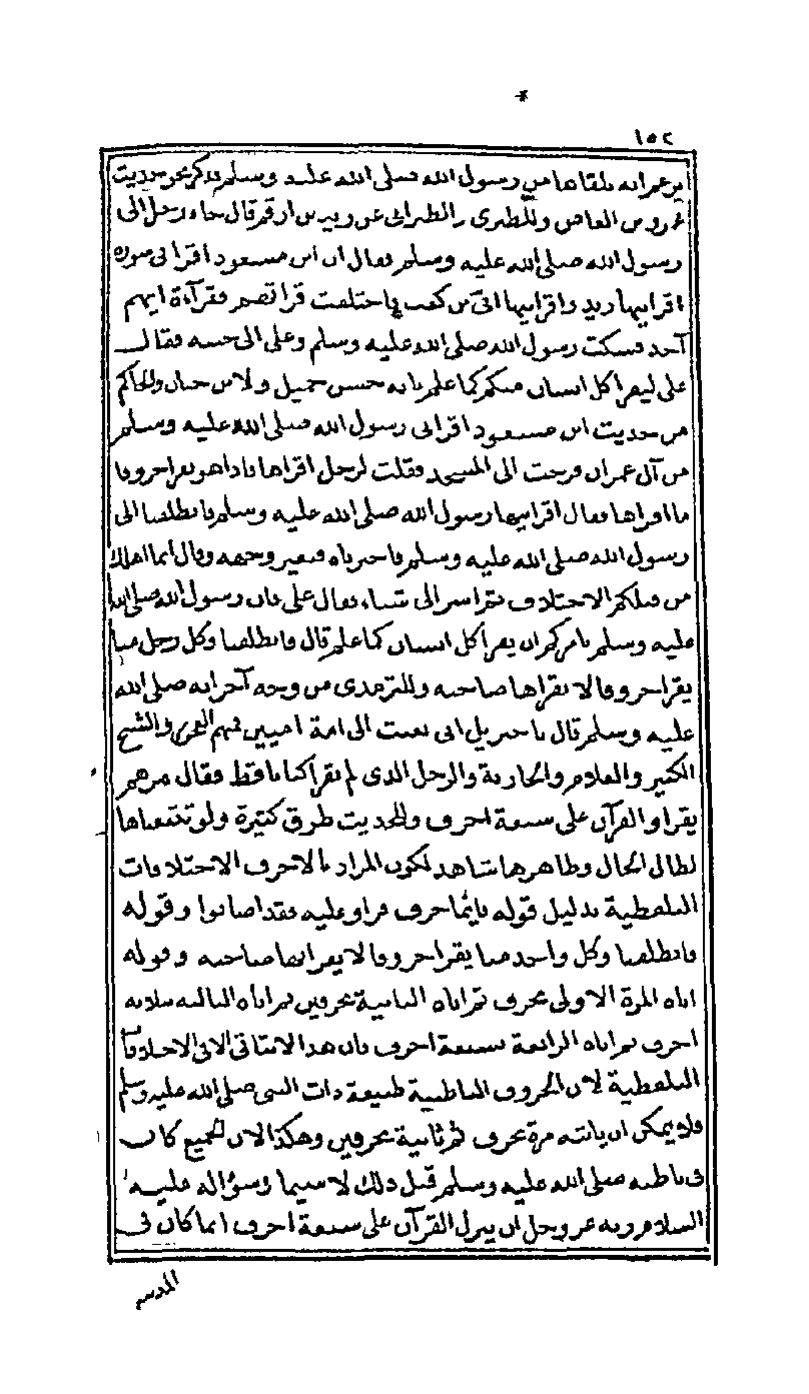 ١٥٢
من عمر انه تلقاها من رسول الله صلى الله عليه وسلم فذكر نحو حديث
عمرو بن العاص وللطبرى والطبرانى عن زيد بن ارقم قال جاء رجل الى
رسول الله صلى الله عليه وسلم فقال ان ابن مسعود اقرانى سورة
اقرانيها زيد واقرانيها ابىّ بن كعب فاختلفت قراتهم فقرآءة ايهم
آخذ فسكت رسول الله صلى الله عليه وسلم وعلى الى جنبه فقال
على ليقرا كل انسان منكم كما علم فانه حسن جميل ولابن حبان والحاكم
من حديث ابن مسعود اقرانى رسول الله صلى الله عليه وسلم
من آل عمران فرحت الى المسجد فقلت لرجل اقراها فاذا هو يقرا حروفا
ما اقراها فقال اقرانيها رسول الله صلى الله عليه وسلم فانطلقنا الى
رسول الله صلى الله عليه وسلم فاخبرناه فتغير وجهه وقال انما اهلك
من قبلكم الاختلاف ثم اسر الى على شيئا فقال على فان رسول الله صلى الله
عليه وسلم يامركم ان يقرا كل انسان كما علم قال فانطلقنا وكل رجل منا
يقرا حروفا لا يقراها صاحبه وللترمذى من وجه آخر انه صلى الله
عليه وسلم قال يا جبريل انى بعثت الى امة اميين فيهم العجوز والشيخ
الكبير والغلام والجارية والرجل الذى لم يقرا كتابا قط فقال مرهم
يقراوا القرآن على سبعة احرف وللحديث طرق كثيرة ولو تتبعناها
لطال الحال وظاهرها شاهد لكون المراد بالاحرف الاختلافات
اللفظية بدليل قوله فايّما حرف قراو عليه فقد اصابوا وقوله
فانطلقنا وكل واحد منا يقرا حروفا لا يقراها صاحبه وقوله
اتاه المرة الاولى بحرف ثم اتاه الثانية بحرفين ثم اتاه الثالثة بثلاثة
احرف ثم اتاه الرابعة بسبعة احرف فان هذا لا يتاتى الا فى الاختلافات
اللفظية لان الحروف الباطنية طبيعة ذات النبى صلى الله عليه وسلم
فلا يمكن ان ياتيه مرة بحرف ثم ثانية بحرفين وهكذا لان الجميع كان
فى باطنه صلى الله عليه وسلم قبل ذلك لا سيما وسؤاله عليه
السلام ربه عز وجل ان ينزل القرآن على سبعة احرف انما كان فى